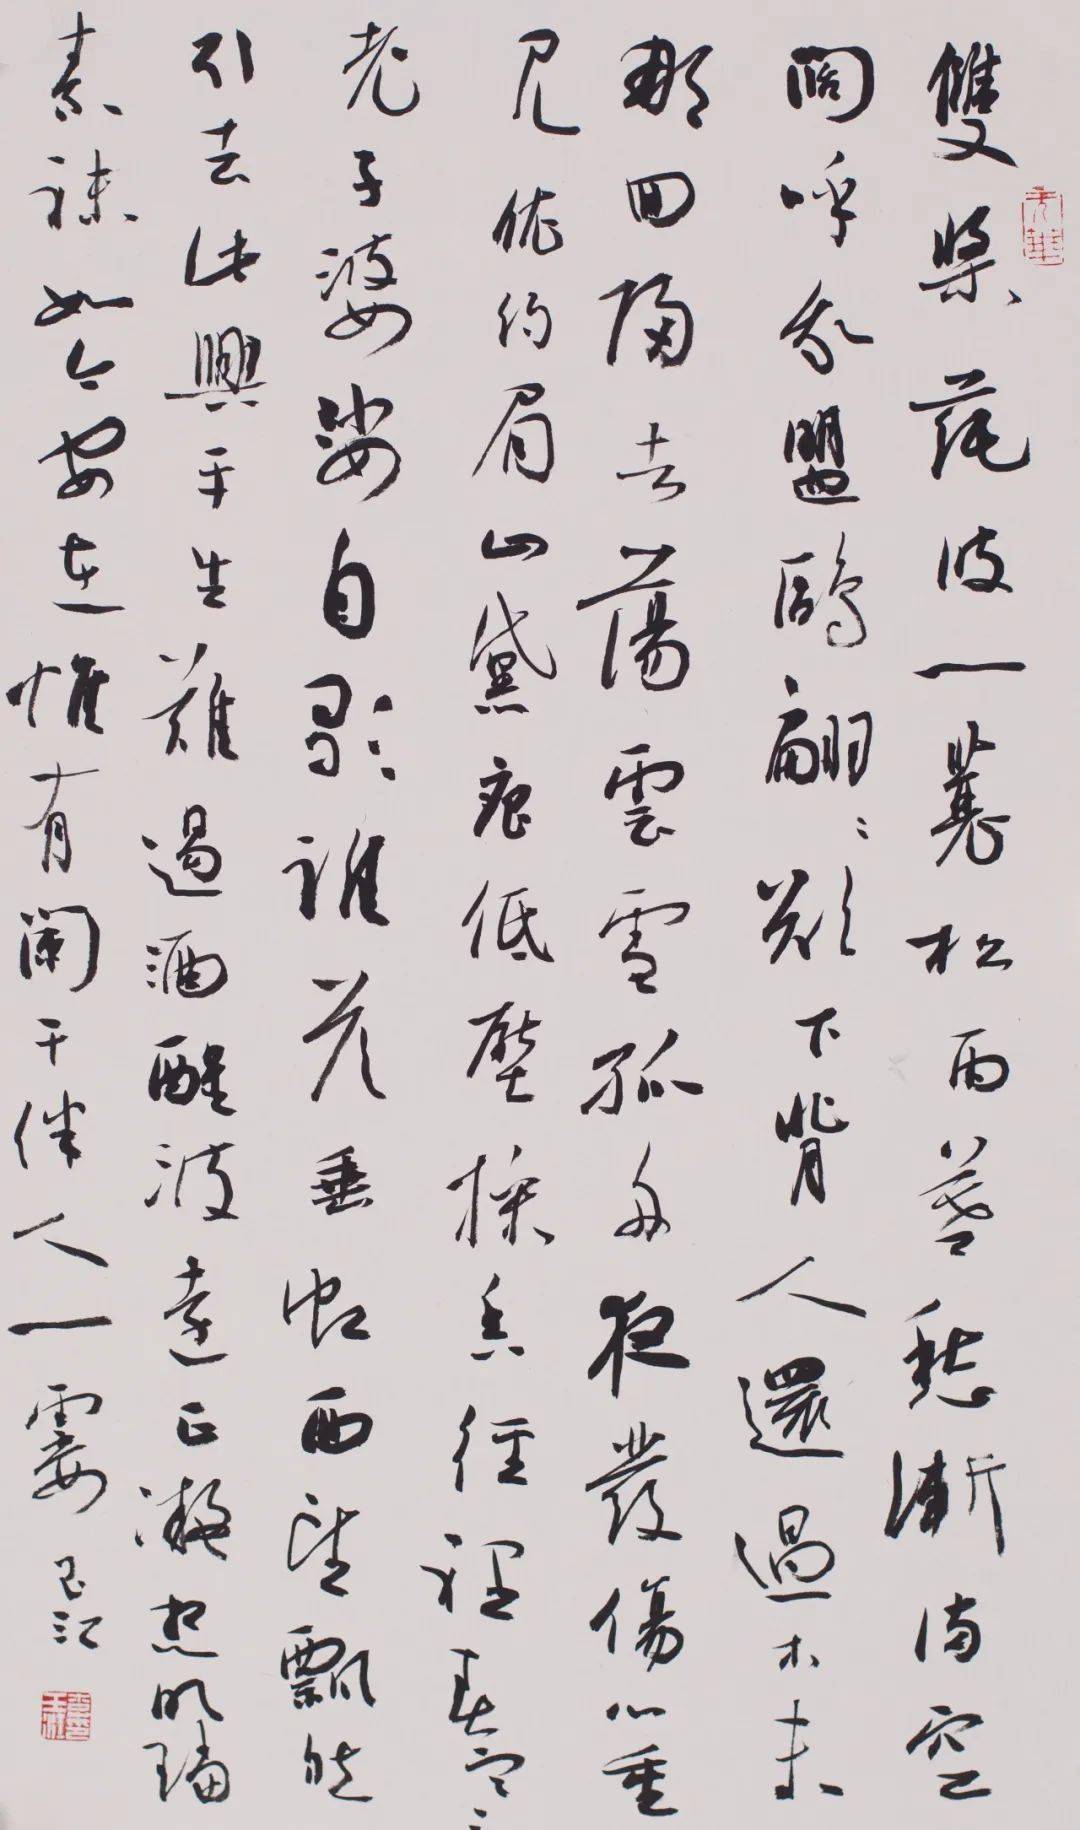 雙槳莼波一蓑松雨暮愁漸滿空
闊呼我盟鷗翩〻欲下背人還過木末
那回歸去蕩雲雪孤舟夜發傷心重
見依約眉山黛痕低壓採香徑裡春寒
老子婆娑自歌誰答垂虹西望飄然
引去此興平生難遏酒醒波遠正凝想明璫
素襪如今安在惟有闌干伴人一霎